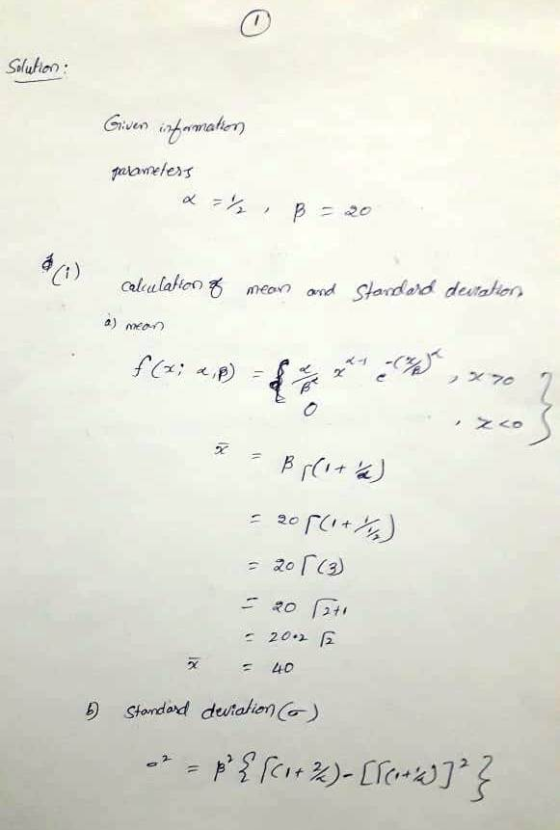 1
Solution:
Given information
parameters
α = 1/2 , β = 20
(i) calculation of mean and Standard deviation
a) mean
f(x; α,β) = { α/β^α x^(α-1) e^-(x/β)^α , x>0
0 , x<0 }
x̄ = β Γ(1 + 1/α)
= 20 Γ(1 + 1/1/2)
= 20 Γ(3)
= 20 Γ2+1
= 20·2 Γ2
x̄ = 40
b) Standard deviation (σ)
σ² = β² { Γ(1 + 2/α) - [Γ(1+1/α)]² }